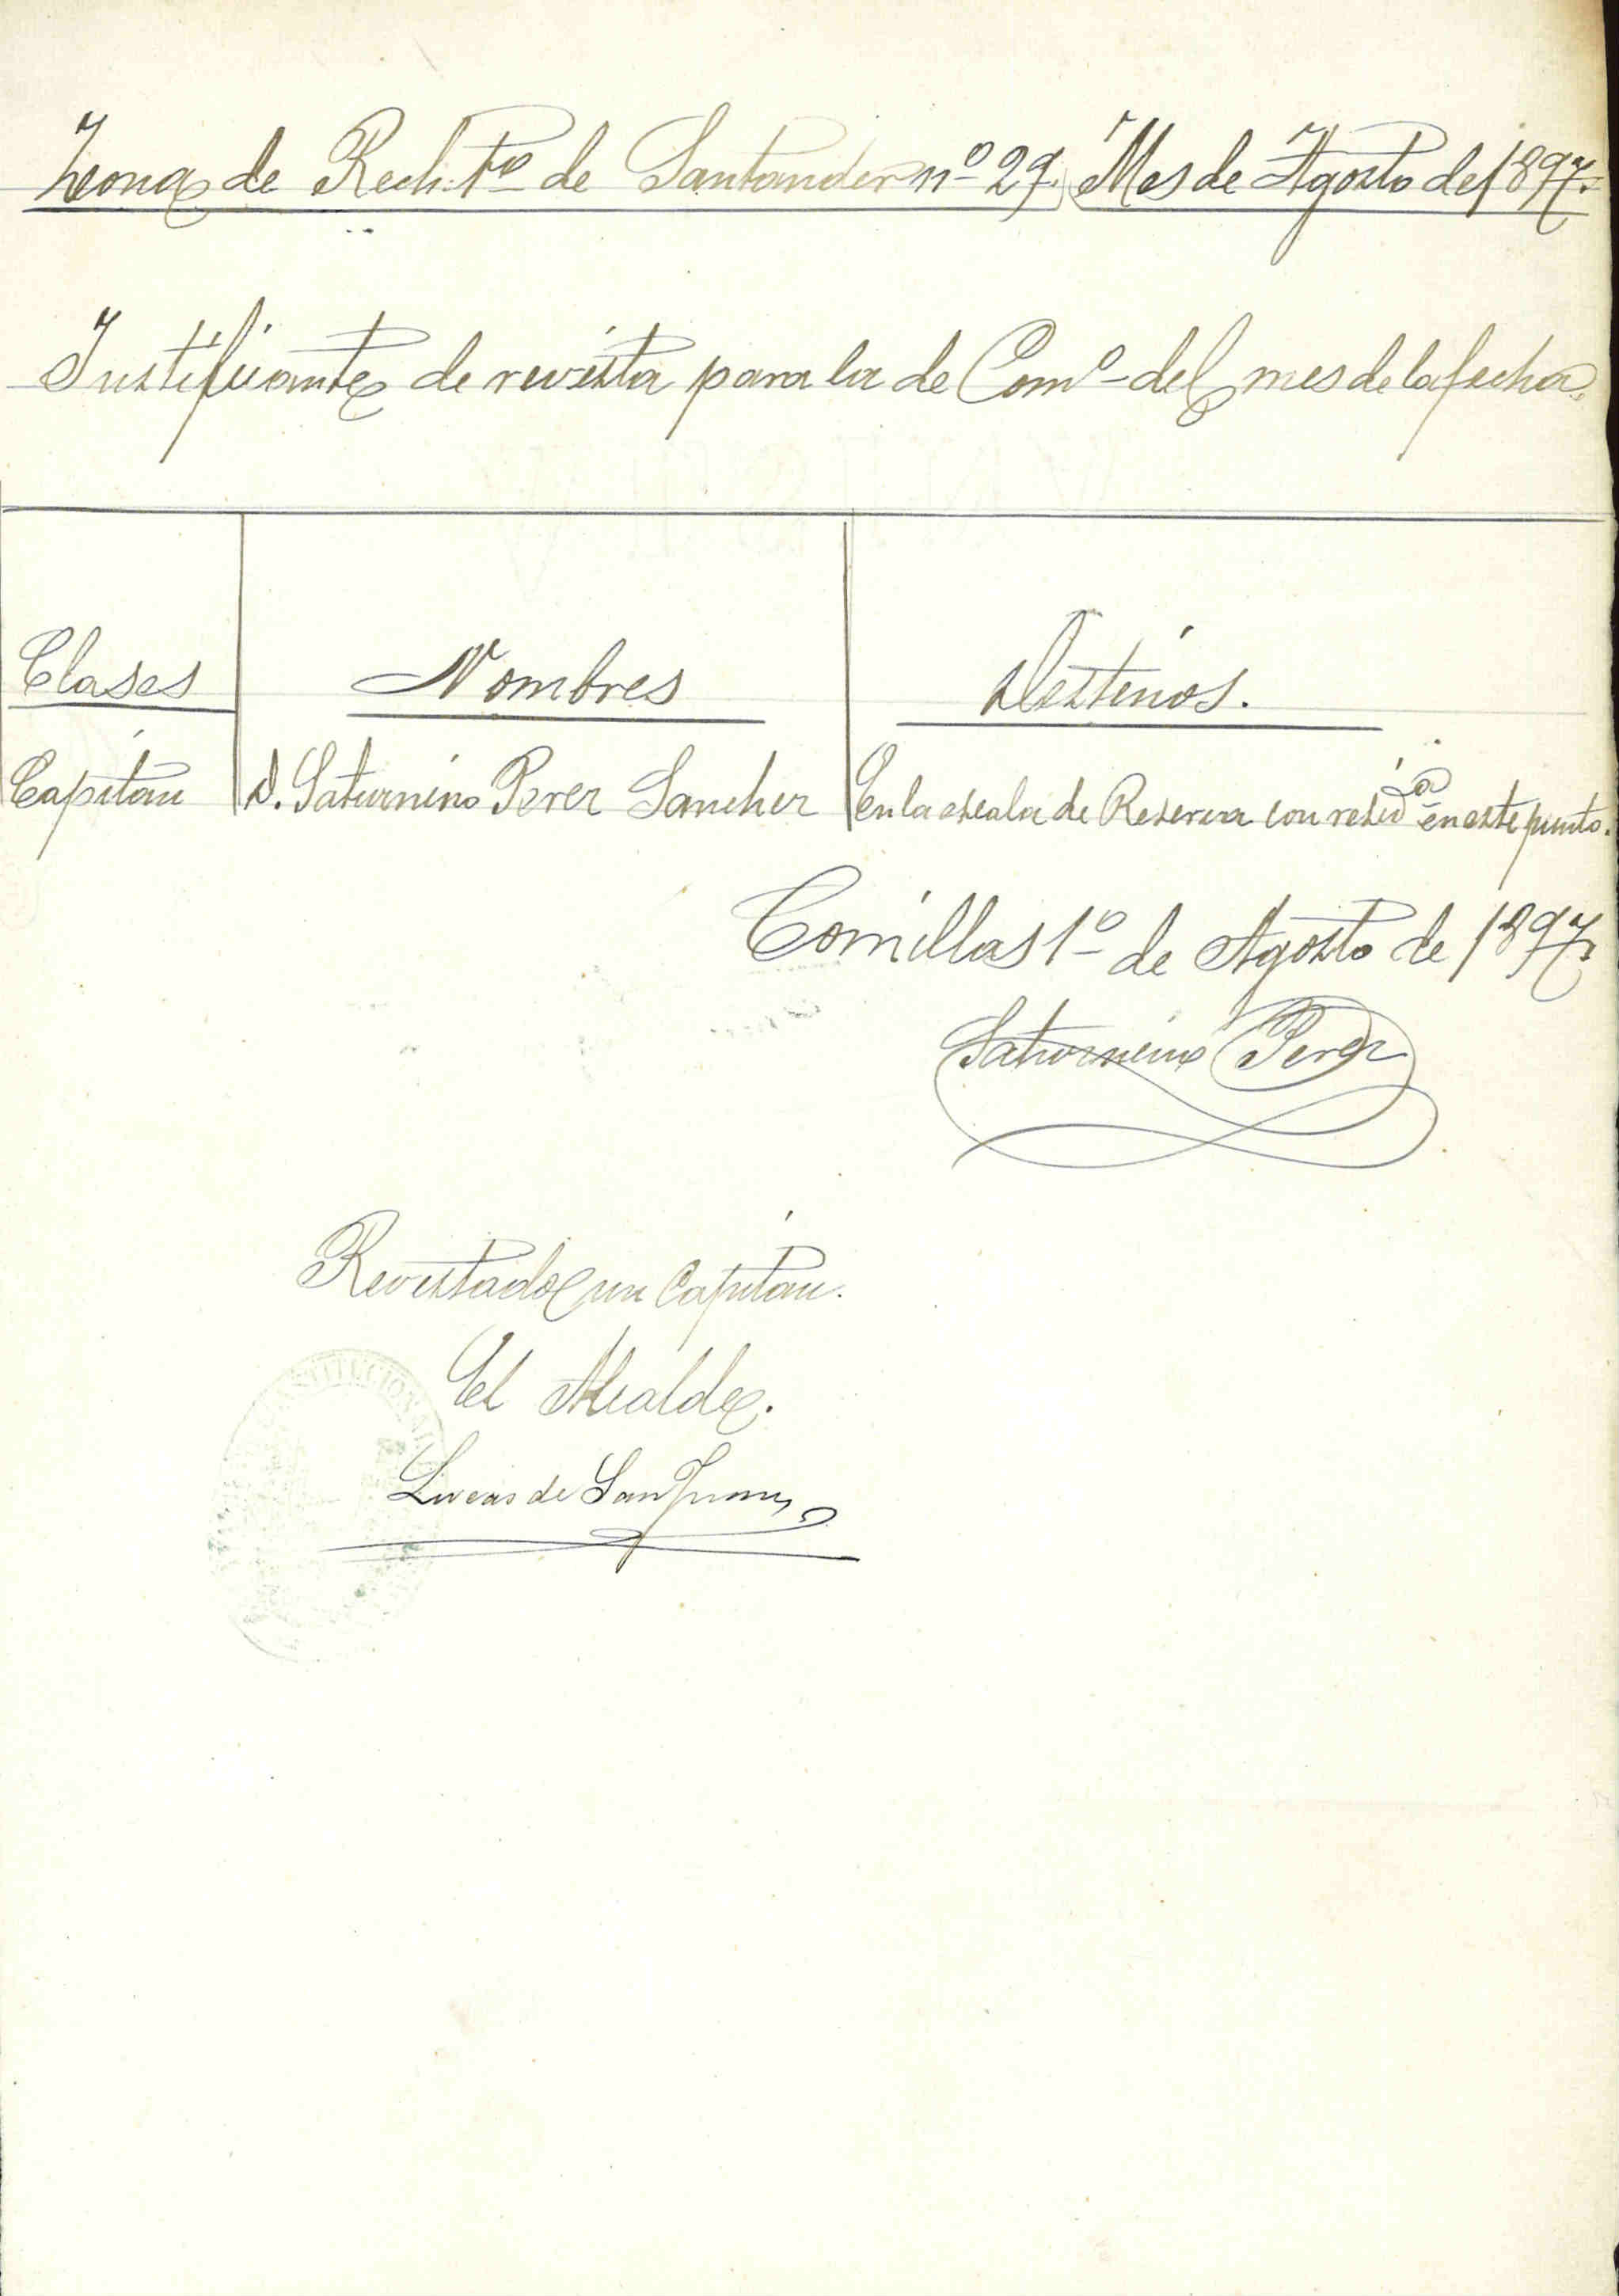 Zona de Reclt.to de Santander nº 29. Mes de Agosto de 1897.
Justificante de revista para la de Comº del mes de la fecha.
Clases Nombres Destinos.
Capitan D. Saturnino Perez Sanchez En la escala de Reserva con resida en este punto.
Comillas 1º de Agosto de 1897.
Saturnino Perez
Revistado un Capitan.
El Alcalde.
Lucas de San Juan
CONSTITUCIONAL